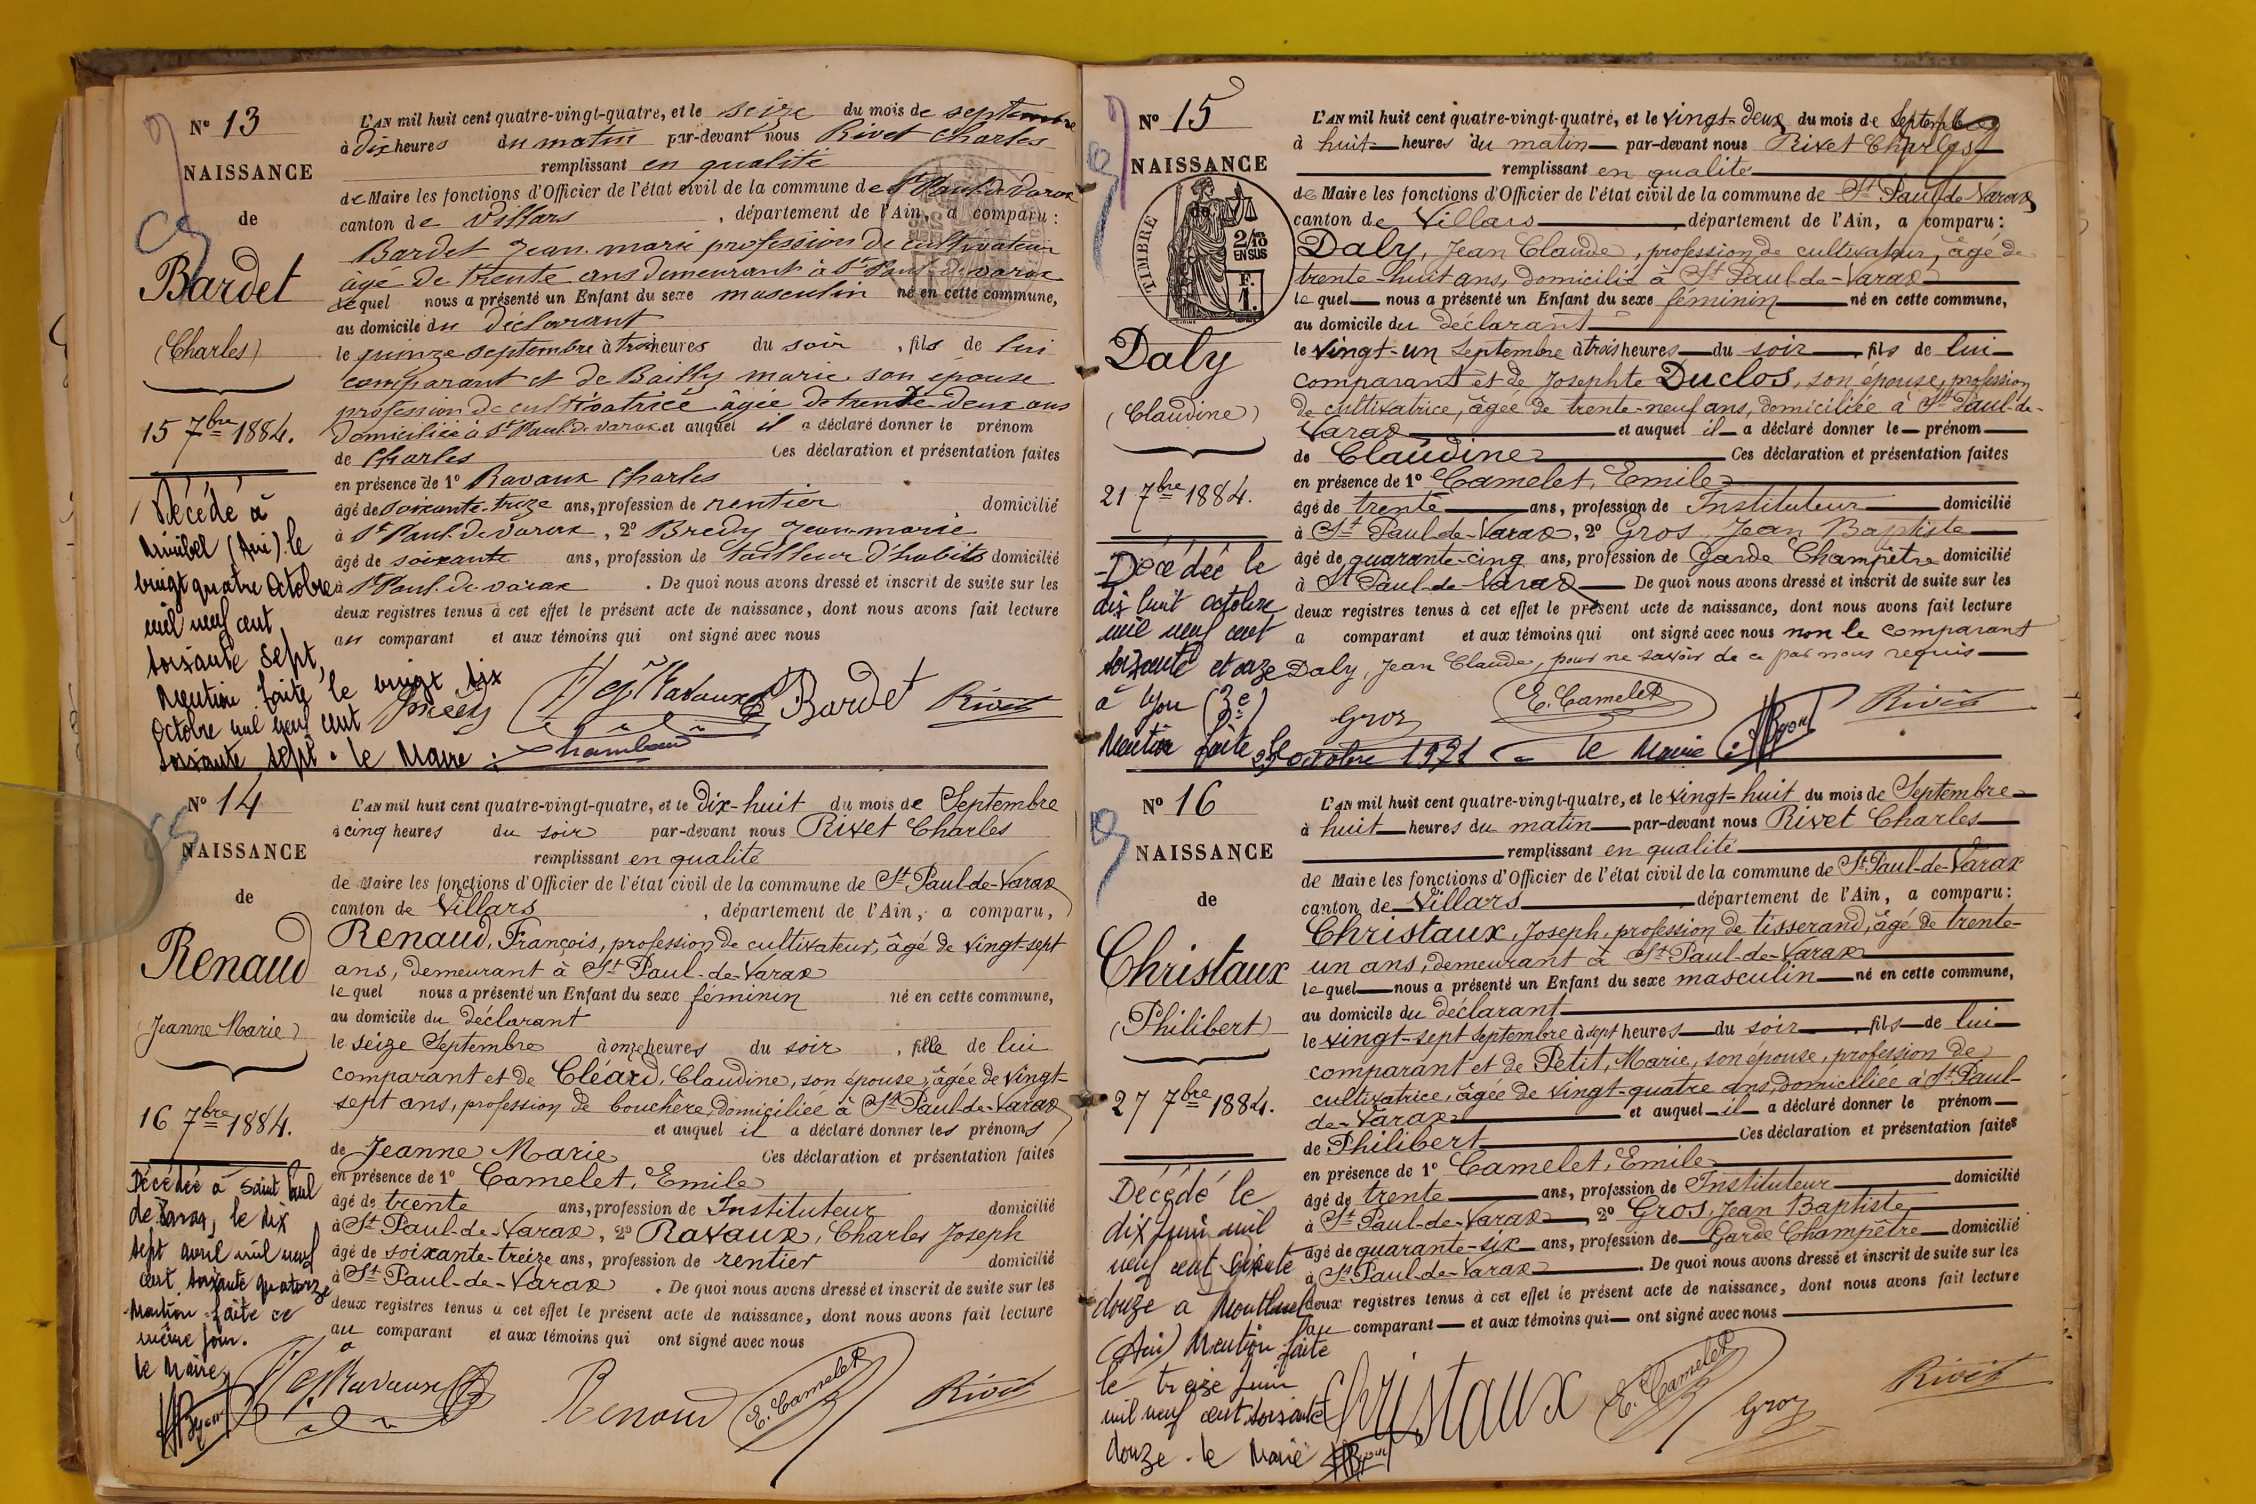 N° 13
NAISSANCE
de
Bardet
(Charles)
15 7bre 1884.
Décédé à
Miribel (Ain). le
vingt quatre Octobre
mil neuf cent
soixante sept,
Mention faite le vingt six
Octobre mil neuf cent
soixante sept. le Maire :
L'AN mil huit cent quatre-vingt-quatre, et le seize du mois de septembre
à dix heures du matin par-devant nous Rivet Charles
remplissant en qualité
de Maire les fonctions d'Officier de l'état civil de la commune de St Paul de Varax
canton de Villars, département de l'Ain, a comparu :
Bardet Jean-marie profession de cultivateur
âgé de trente ans demeurant à St Paul de varax
lequel nous a présenté un Enfant du sexe masculin né en cette commune,
au domicile du déclarant
le quinze septembre à trois heures du soir, fils de lui
comparant et de Bailly marie son épouse
profession de cultivatrice âgée de trente-deux ans
domiciliée à St Paul-de varax et auquel il a déclaré donner le prénom
de Charles Ces déclaration et présentation faites
en présence de 1° Ravaux Charles
âgé de soixante-treize ans, profession de rentier domicilié
à St Paul-de varax, 2° Bredy Jean-marie
âgé de soixante ans, profession de tailleur d'habits domicilié
à St Paul-de varax. De quoi nous avons dressé et inscrit de suite sur les
deux registres tenus à cet effet le présent acte de naissance, dont nous avons fait lecture
au comparant et aux témoins qui ont signé avec nous
Ravaux Bardet Rivet
N° 14
NAISSANCE
de
Renaud
(Jeanne Marie)
16 7bre 1884.
Décédée à Saint Paul
de Varax, le dix
sept avril mil neuf
cent soixante quatorze
Mention faite ce
même jour.
le Maire,
L'AN mil huit cent quatre-vingt-quatre, et le Dix-huit du mois de Septembre
à cinq heures du soir par-devant nous Rivet Charles
remplissant en qualité
de Maire les fonctions d'Officier de l'état civil de la commune de St Paul-de-Varax
canton de Villars, département de l'Ain, a comparu,
Renaud, François, profession de cultivateur, âgé de vingt-sept
ans, demeurant à St Paul-de-Varax
lequel nous a présenté un Enfant du sexe féminin né en cette commune,
au domicile du déclarant
le seize Septembre à onze heures du soir, fille de lui
comparant et de Cléard, Claudine, son épouse, âgée de vingt-
sept ans, profession de bouchère, domiciliée à St Paul-de-Varax
et auquel il a déclaré donner les prénoms
de Jeanne Marie Ces déclaration et présentation faites
en présence de 1° Camelet, Emile
âgé de trente ans, profession de Instituteur domicilié
à St Paul-de-Varax, 2° Ravaux, Charles Joseph
âgé de soixante-treize ans, profession de rentier domicilié
à St Paul-de-Varax. De quoi nous avons dressé et inscrit de suite sur les
deux registres tenus à cet effet le présent acte de naissance, dont nous avons fait lecture
au comparant et aux témoins qui ont signé avec nous
Ravaux Renaud E. Camelet Rivet
N° 15
NAISSANCE
de
TIMBRE
2/10
EN SUS
F.
1.
Daly
(Claudine)
21 7bre 1884.
Décédée le
dix huit octobre
mil neuf cent
soixante et onze
à Lyon (3e)
Mention faite le 29 octobre 1971 le Maire :
L'AN mil huit cent quatre-vingt-quatre, et le vingt-deux du mois de Septembre
à huit heures du matin par-devant nous Rivet Charles
remplissant en qualité
de Maire les fonctions d'Officier de l'état civil de la commune de St Paul de Varax
canton de Villars, département de l'Ain, a comparu :
Daly, Jean Claude, profession de cultivateur, âgé de
trente-huit ans, domicilié à St Paul-de-Varax
lequel nous a présenté un Enfant du sexe féminin né en cette commune,
au domicile du déclarant
le vingt-un Septembre à trois heures du soir, fils de lui
comparant et de Josephte Duclos, son épouse, profession
de cultivatrice, âgée de trente-neuf ans, domiciliée à St Paul-de-
Varax et auquel il a déclaré donner le prénom
de Claudine Ces déclaration et présentation faites
en présence de 1° Camelet, Emile
âgé de trente ans, profession de Instituteur domicilié
à St Paul-de-Varax, 2° Gros Jean Baptiste
âgé de quarante-cinq ans, profession de Garde Champêtre domicilié
à St Paul-de-Varax De quoi nous avons dressé et inscrit de suite sur les
deux registres tenus à cet effet le présent acte de naissance, dont nous avons fait lecture
a comparant et aux témoins qui ont signé avec nous non le comparant
Daly, Jean Claude, pour ne savoir de ce par nous requis
Gros E. Camelet Rivet
N° 16
NAISSANCE
de
Christaux
(Philibert)
27 7bre 1884.
Décédé le
dix Juin mil
neuf cent soixante
douze à Montluel
(Ain) Mention faite
le treize Juin
mil neuf cent soixante
douze. le Maire
L'AN mil huit cent quatre-vingt-quatre, et le vingt-huit du mois de Septembre
à huit heures du matin par-devant nous Rivet Charles
remplissant en qualité
de Maire les fonctions d'Officier de l'état civil de la commune de St Paul-de-Varax
canton de Villars département de l'Ain, a comparu :
Christaux, Joseph, profession de tisserand, âgé de trente-
un ans, demeurant à St Paul-de-Varax
lequel nous a présenté un Enfant du sexe masculin né en cette commune,
au domicile du déclarant
le vingt-sept septembre à sept heures du soir, fils de lui
comparant et de Petit, Marie, son épouse, profession de
cultivatrice, âgée de vingt-quatre ans, domiciliée à St Paul-
de-Varax et auquel il a déclaré donner le prénom
de Philibert Ces déclaration et présentation faites
en présence de 1° Camelet, Emile
âgé de trente ans, profession de Instituteur domicilié
à St Paul-de-Varax, 2° Gros, Jean Baptiste
âgé de quarante-six ans, profession de Garde Champêtre domicilié
à St Paul-de-Varax. De quoi nous avons dressé et inscrit de suite sur les
deux registres tenus à cet effet le présent acte de naissance, dont nous avons fait lecture
au comparant et aux témoins qui ont signé avec nous
Christaux E. Camelet Gros Rivet